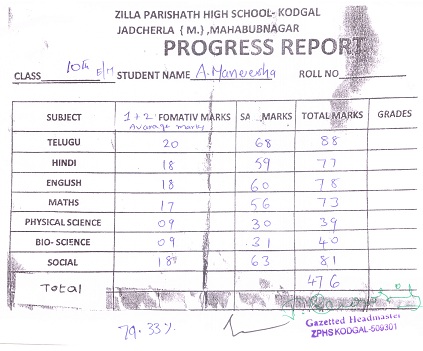 ZILLA PARISHATH HIGH SCHOOL- KODGAL
JADCHERLA { M.} ,MAHABUBNAGAR
PROGRESS REPORT
CLASS 10th E/M STUDENT NAME A. Maneesha ROLL NO
SUBJECT 1+2 FOMATIV MARKS SA MARKS TOTAL MARKS GRADES
Avarage marks
TELUGU 20 68 88
HINDI 18 59 77
ENGLISH 18 60 78
MATHS 17 56 73
PHYSICAL SCIENCE 09 30 39
BIO- SCIENCE 09 31 40
SOCIAL 18 63 81
Total 476
79.33%
Gazetted Headmaster
ZPHS KODGAL-509301